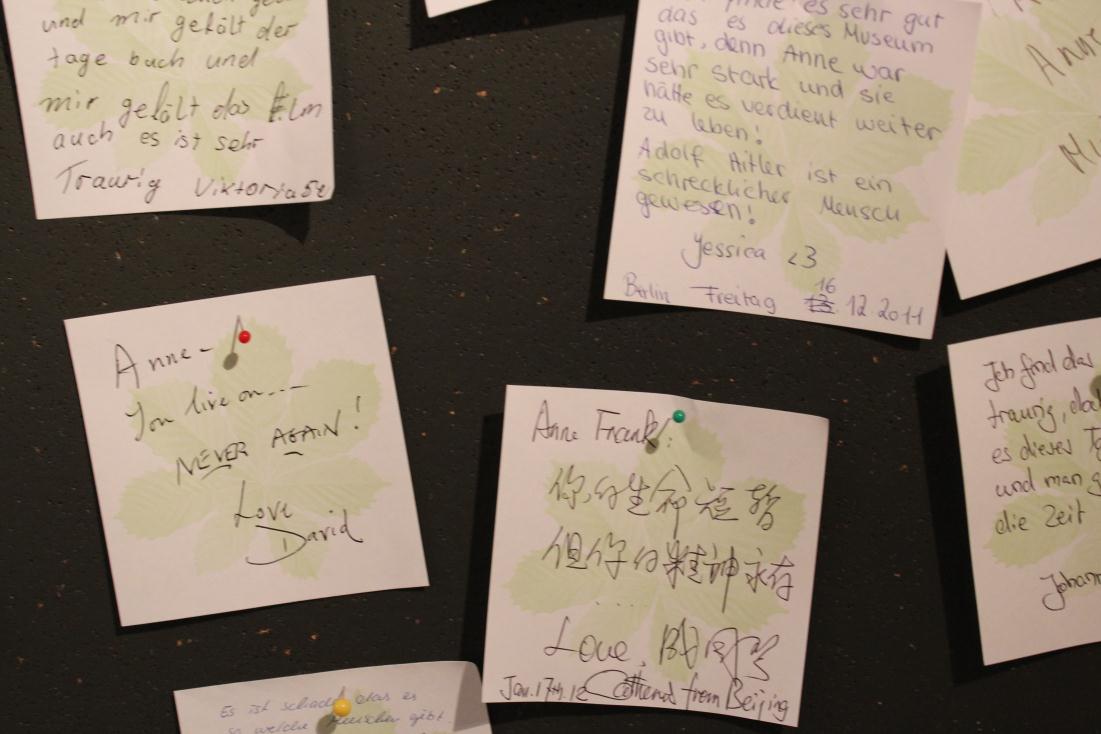 und mir gefält der
tage buch und
mir gefält das Film
auch es ist sehr
Traurig Viktoria
es sehr gut
das es dieses Museum
gibt, denn Anne war
sehr stark und sie
hätte es verdient weiter
zu leben!
Adolf Hitler ist ein
schrecklicher Mensch
gewessen!
Jessica <3
Berlin Freitag 16.12.2011
Anne-
You live on....
NEVER AGAIN!
Love
David
Anne Frank:
你的生命短暂
但你的精神永存
....
Love,
Jan. 17th. 12 from Beijing
Ich find das
traurig,
es dieses
und man
die Zeit
Es ist schade das es
so welche Menschen gibt.